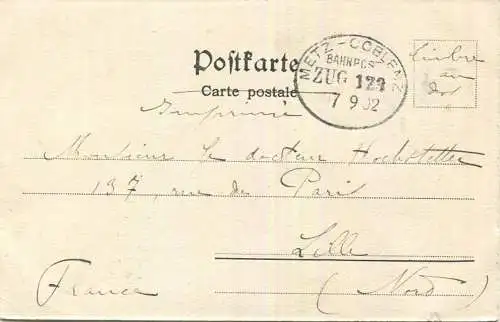 Postkarte
Carte postale
METZ-COBLENZ
BAHNPOST
ZUG 123
7 9 02
timbre
au
dos
Imprimé
Monsieur le docteur Hochstetter
137, rue de Paris
Lille
France (Nord)